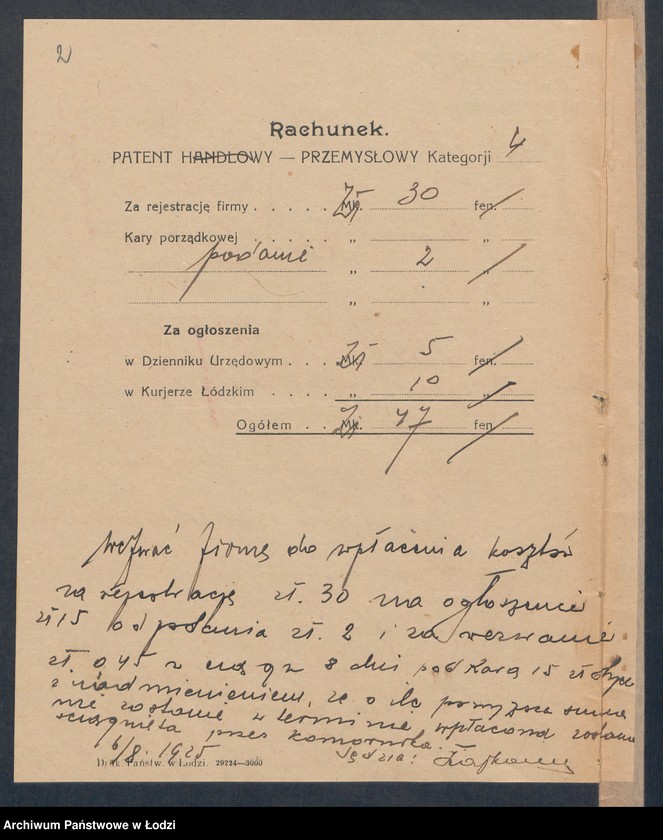 2
Rachunek.
PATENT HANDLOWY — PRZEMYSŁOWY Kategorji 4
Za rejestrację firmy . . . . . Mk. Zł 30 fen.
Kary porządkowej . . . . . „ „
podanie „ 2 „
„ „
Za ogłoszenia
w Dzienniku Urzędowym . . . Mk. Zł 5 fen.
w Kurjerze Łódzkim . . . . „ 10 „
Ogółem . . Mk. Zł 47 fen.
Wezwać firmę do wpłacenia kosztów
za rejestrację zł. 30 na ogłoszenie
zł 15 od podania zł. 2 i za wezwanie
zł. 0 45 w ciągu 8 dni pod karą 15 zł
z nadmienieniem, że o ile powyższa suma
nie zostanie w terminie wpłacona zostanie
ściągnięta przez komornika.
6/8. 1925 Sędzia:
Druk Państw. w Łodzi. 29224—3000
Archiwum Państwowe w Łodzi